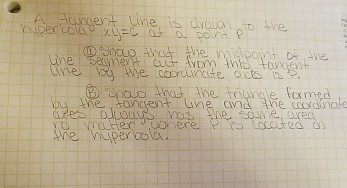 A tangent line is drawn to the
hyperbola xy=c at a point P
ⓐ Show that the midpoint of the
line segment cut from this tangent
line by the coordinate axes is P.
ⓑ Show that the triangle formed
by the tangent line and the coordinate
axes always has the same area
no matter where P is located on
the hyperbola.